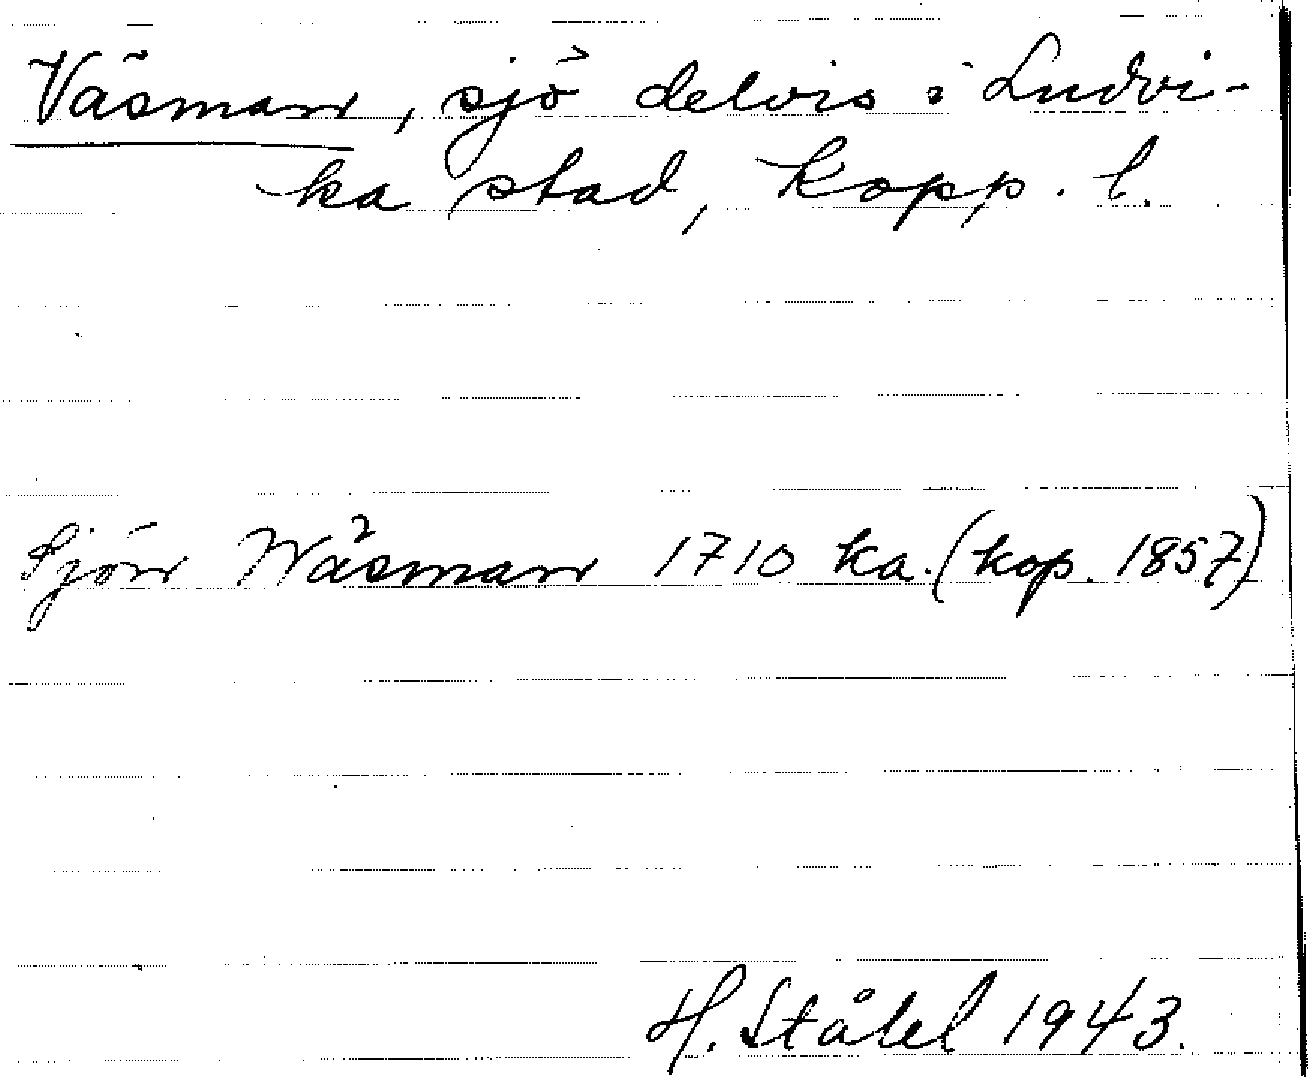 Väsman, sjö delvis i Ludvi-
ka stad, Kopp. l.
Sjön Wäsman 1710 ka. (kop. 1857)
H. Ståhl 1943.